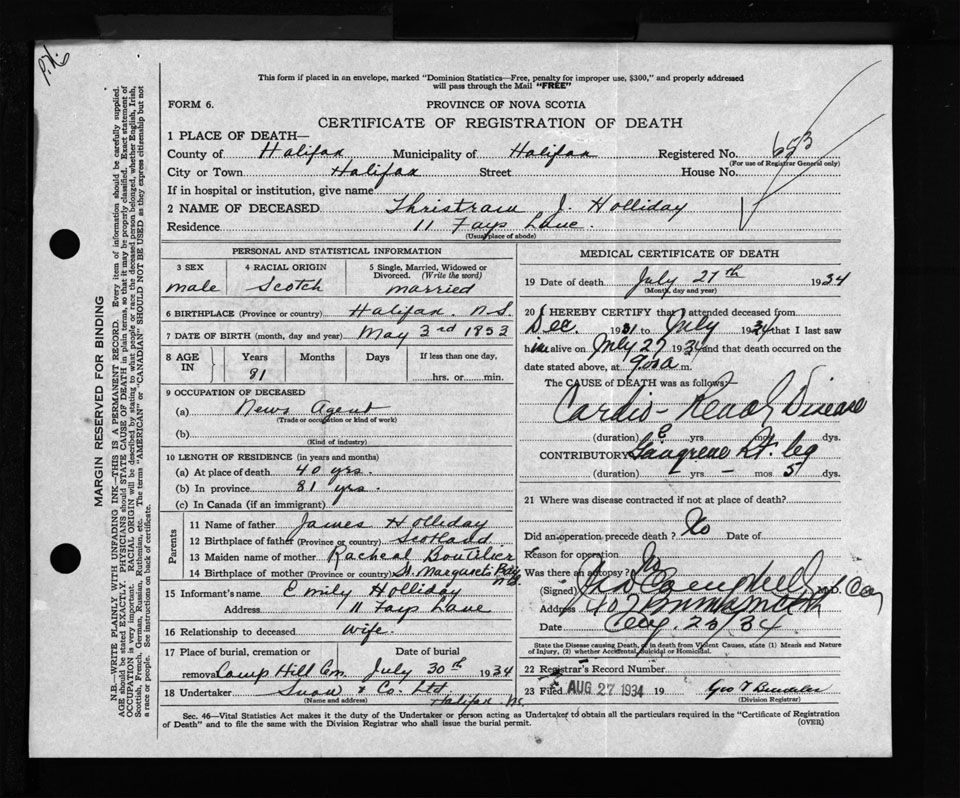 P.N.
This form if placed in an envelope, marked "Dominion Statistics—Free, penalty for improper use, $300," and properly addressed
will pass through the Mail "FREE"
FORM 6. PROVINCE OF NOVA SCOTIA
CERTIFICATE OF REGISTRATION OF DEATH
1 PLACE OF DEATH—
County of Halifax Municipality of Halifax Registered No. 653
(For use of Registrar General only)
City or Town Halifax Street House No.
If in hospital or institution, give name
2 NAME OF DECEASED Thristram J. Holliday
Residence 11 Fays Lane.
(Usual place of abode)
PERSONAL AND STATISTICAL INFORMATION
3 SEX 4 RACIAL ORIGIN 5 Single, Married, Widowed or
Divorced. (Write the word)
male Scotch married
6 BIRTHPLACE (Province or country) Halifax. N.S.
7 DATE OF BIRTH (month, day and year) May 3rd 1853
8 AGE IN Years Months Days If less than one day,
81 hrs. or min.
9 OCCUPATION OF DECEASED
(a) News Agent
(Trade or occupation or kind of work)
(b)
(Kind of industry)
10 LENGTH OF RESIDENCE (in years and months)
(a) At place of death 40 yrs.
(b) In province 81 yrs.
(c) In Canada (if an immigrant)
Parents
11 Name of father James Holliday
12 Birthplace of father (Province or country) Scotland
13 Maiden name of mother Racheal Boutilier
14 Birthplace of mother (Province or country) St. Margaret's Bay N.S.
15 Informant's name Emily Holliday
Address 11 Fays Lane
16 Relationship to deceased wife.
17 Place of burial, cremation or Date of burial
removal Camp Hill Cem. July 30th 1934
18 Undertaker Snow & Co. Ltd
(Name and address) Halifax N.S.
MEDICAL CERTIFICATE OF DEATH
19 Date of death July 27th 1934
(Month, day and year)
20 I HEREBY CERTIFY that I attended deceased from
Dec. 1931 to July 1934 that I last saw
him alive on July 27 1934 and that death occurred on
date stated above, at m.
The CAUSE of DEATH was as follows:
Cardio-Renal Disease
(duration) yrs mos dys.
CONTRIBUTORY Gangrene Rt. leg
(duration) – yrs – mos 5 dys.
21 Where was disease contracted if not at place of death?
Did an operation precede death? No Date of
Reason for operation
Was there an autopsy? No
(Signed) M.D.
Address 407
Date Aug. 23/34
State the Disease causing Death, or in death from Violent Causes, state (1) Means and Nature
of Injury, (2) whether Accidental, Suicidal or Homicidal.
22 Registrar's Record Number
23 Filed AUG 27 1934 19 Geo
(Division Registrar)
Sec. 46—Vital Statistics Act makes it the duty of the Undertaker or person acting as Undertaker to obtain all the particulars required in the "Certificate of Registration
of Death" and to file the same with the Division Registrar who shall issue the burial permit. (OVER)
MARGIN RESERVED FOR BINDING
N.B.—WRITE PLAINLY WITH UNFADING INK—THIS IS A PERMANENT RECORD. Every item of information should be carefully supplied.
AGE should be stated EXACTLY. PHYSICIANS should STATE CAUSE OF DEATH in plain terms, so that it may be properly classified. Exact statement of
OCCUPATION is very important. RACIAL ORIGIN will be described by stating to what people or race the deceased person belonged, whether English, Irish,
Scottish, French, German, Russian, Ruthenian, etc. The terms "AMERICAN" or "CANADIAN" SHOULD NOT BE USED as they express citizenship but not
a race or people. See instructions on back of certificate.